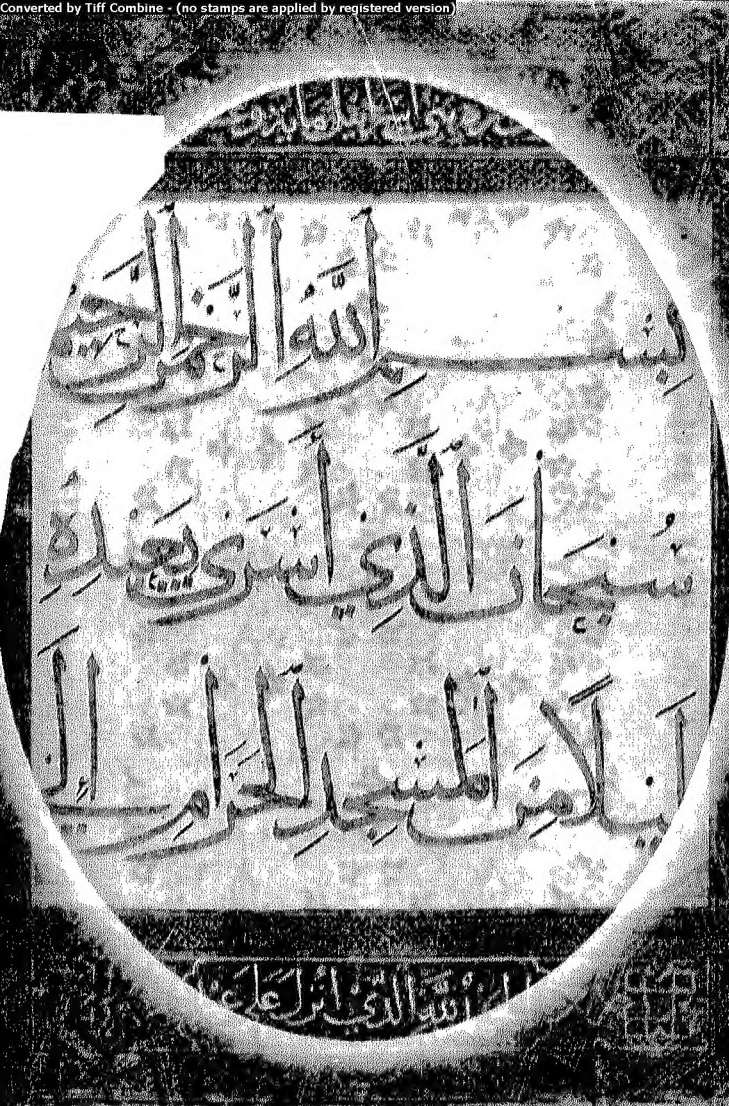 Converted by Tiff Combine - (no stamps are applied by registered version)
بِسْمِ اللَّهِ الرَّحْمٰنِ الرَّحِيمِ
سُبْحَانَ الَّذِي أَسْرَى بِعَبْدِهِ
لَيْلًا مِنَ الْمَسْجِدِ الْحَرَامِ إِلَى
لله الذي انزل على